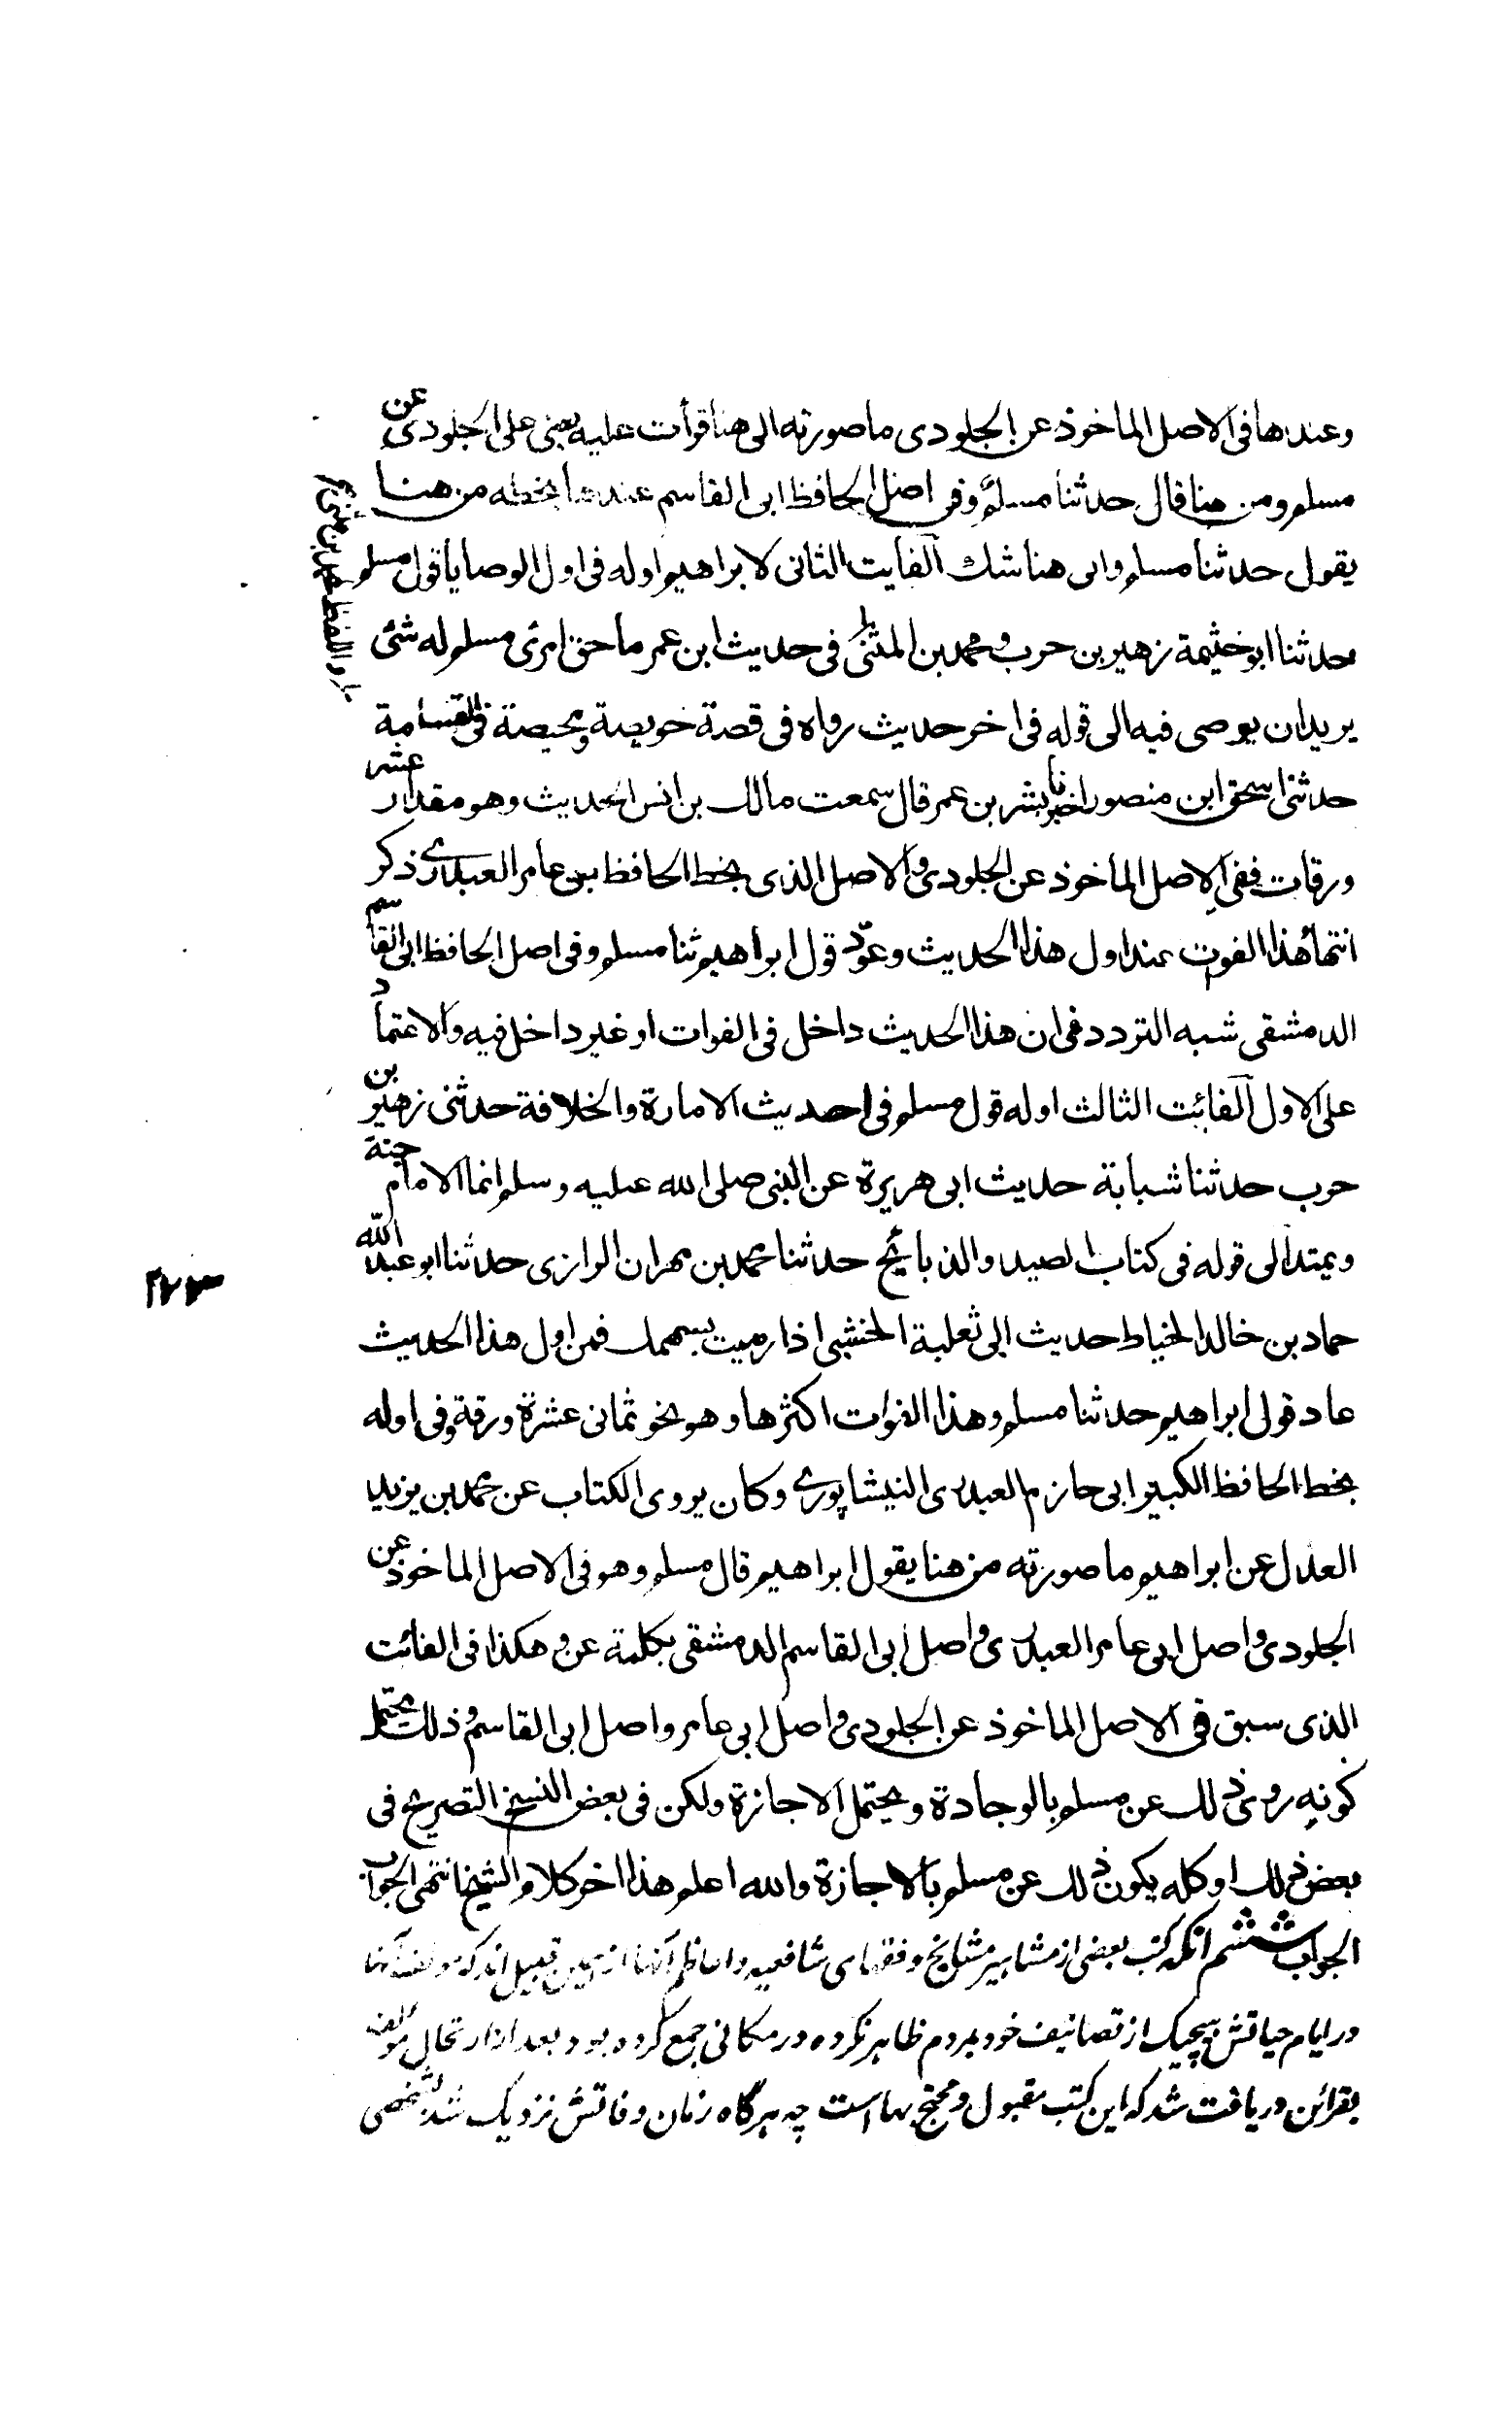 وعندها فى الاصل الماخوذ عن الجلودى ما صورته الى هنا قرأت عليه يعنى على الجلودى عن
مسلم ومن هنا قال حدثنا مسلم وفى اصل الحافظ ابى القاسم عندها بخطه من هنا
يقول حدثنا مسلم والى هنا شك الفايت الثانى لابراهيم اوله فى اول الوصايا قول مسلم
حدثنا ابو خثيمة زهير بن حرب ومحمد بن المثنى فى حديث ابن عمر ما حق امرئ مسلم له شئ
يريد ان يوصى فيه الى قوله فى اخر حديث رواه فى قصة حويصة ومحيصة فى القسامة
حدثنى اسحق ابن منصور اخبرنا بشر بن عمر قال سمعت مالك بن انس الحديث وهو مقدار عشر
ورقات ففى الاصل الماخوذ عن الجلودى والاصل الذى بخط الحافظ بى عامر العبدرى ذكر
انتهاء هذا الفوت عند اول هذا الحديث وعود قول ابراهيم ثنا مسلم وفى اصل الحافظ ابى القاسم
الدمشقى شبه التردد فى ان هذا الحديث داخل فى الفوات او غير داخل فيه والاعتماد
على الاول الفائت الثالث اوله قول مسلم فى احديث الامارة والخلافة حدثنى زهير بن
حرب حدثنا شبابة حديث ابى هريرة عن النبى صلى الله عليه وسلم انما الامام جنة
ويمتد الى قوله فى كتاب الصيد والذبائح حدثنا محمد بن مهران الرازى حدثنا ابو عبد الله
حماد بن خالد الخياط حديث ابى ثعلبة الخنشبى اذا رميت بسهمك فمن اول هذا الحديث
عاد قول ابراهيم حدثنا مسلم وهذا الفوات اكثرها وهو نحو ثمانى عشرة ورقة وفى اوله
بخط الحافظ الكبير ابى حازم العبدرى النيشاپورى وكان يروى الكتاب عن محمد بن يزيد
العدل عن ابراهيم ما صورته من هنا يقول ابراهيم قال مسلم وهو فى الاصل الماخوذ عن
الجلودى واصل ابى عامر العبدرى واصل ابى القاسم الدمشقى بكلمة عن وهكذا فى الفائت
الذى سبق فى الاصل الماخوذ عن الجلودى واصل ابى عامر واصل ابى القاسم وذلك يحتمل
كونه روى ذلك عن مسلم بالوجادة ويحتمل الاجازة ولكن فى بعض النسخ التصريح فى
بعض ذلك او كله يكون ذلك عن مسلم بالاجازة والله اعلم هذا اخر كلام الشيخ انتهى الجواب
الجواب ششم انكه كتب بعضى از مشاهير مشايخ وفقهاى شافعيه واعاظم آنها ازين قبيل اند كه مولف آنها
در ايام حياتش هيچيك از تصانيف خود بمردم ظاهر نكرده در مكانى جمع كرده بود بعد از ارتحال مولف
بقرائن دريافت شد كه اين كتب مقبول ومحتج بها است چه هرگاه زمان وفاتش نزديك شد بشخصى
٢٧٣